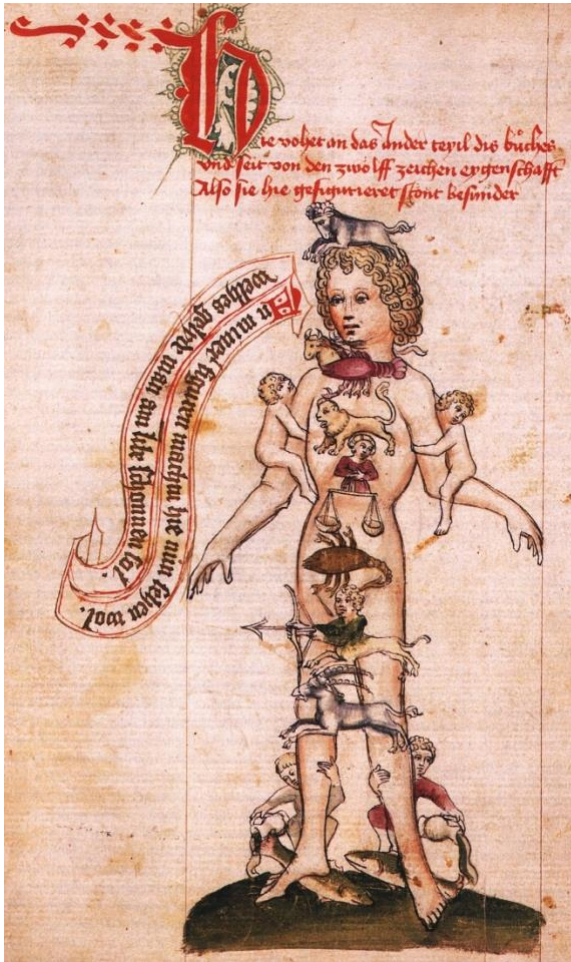 Hie vohet an das Ander teyil dis bůches
Vnd seit von den zwölff zeichen eygenschafft
Also sie hie gefigurieret stont besunder
In miner figuren machtu hie nun sehen wol.
welhes gelyde man schonnen sol.